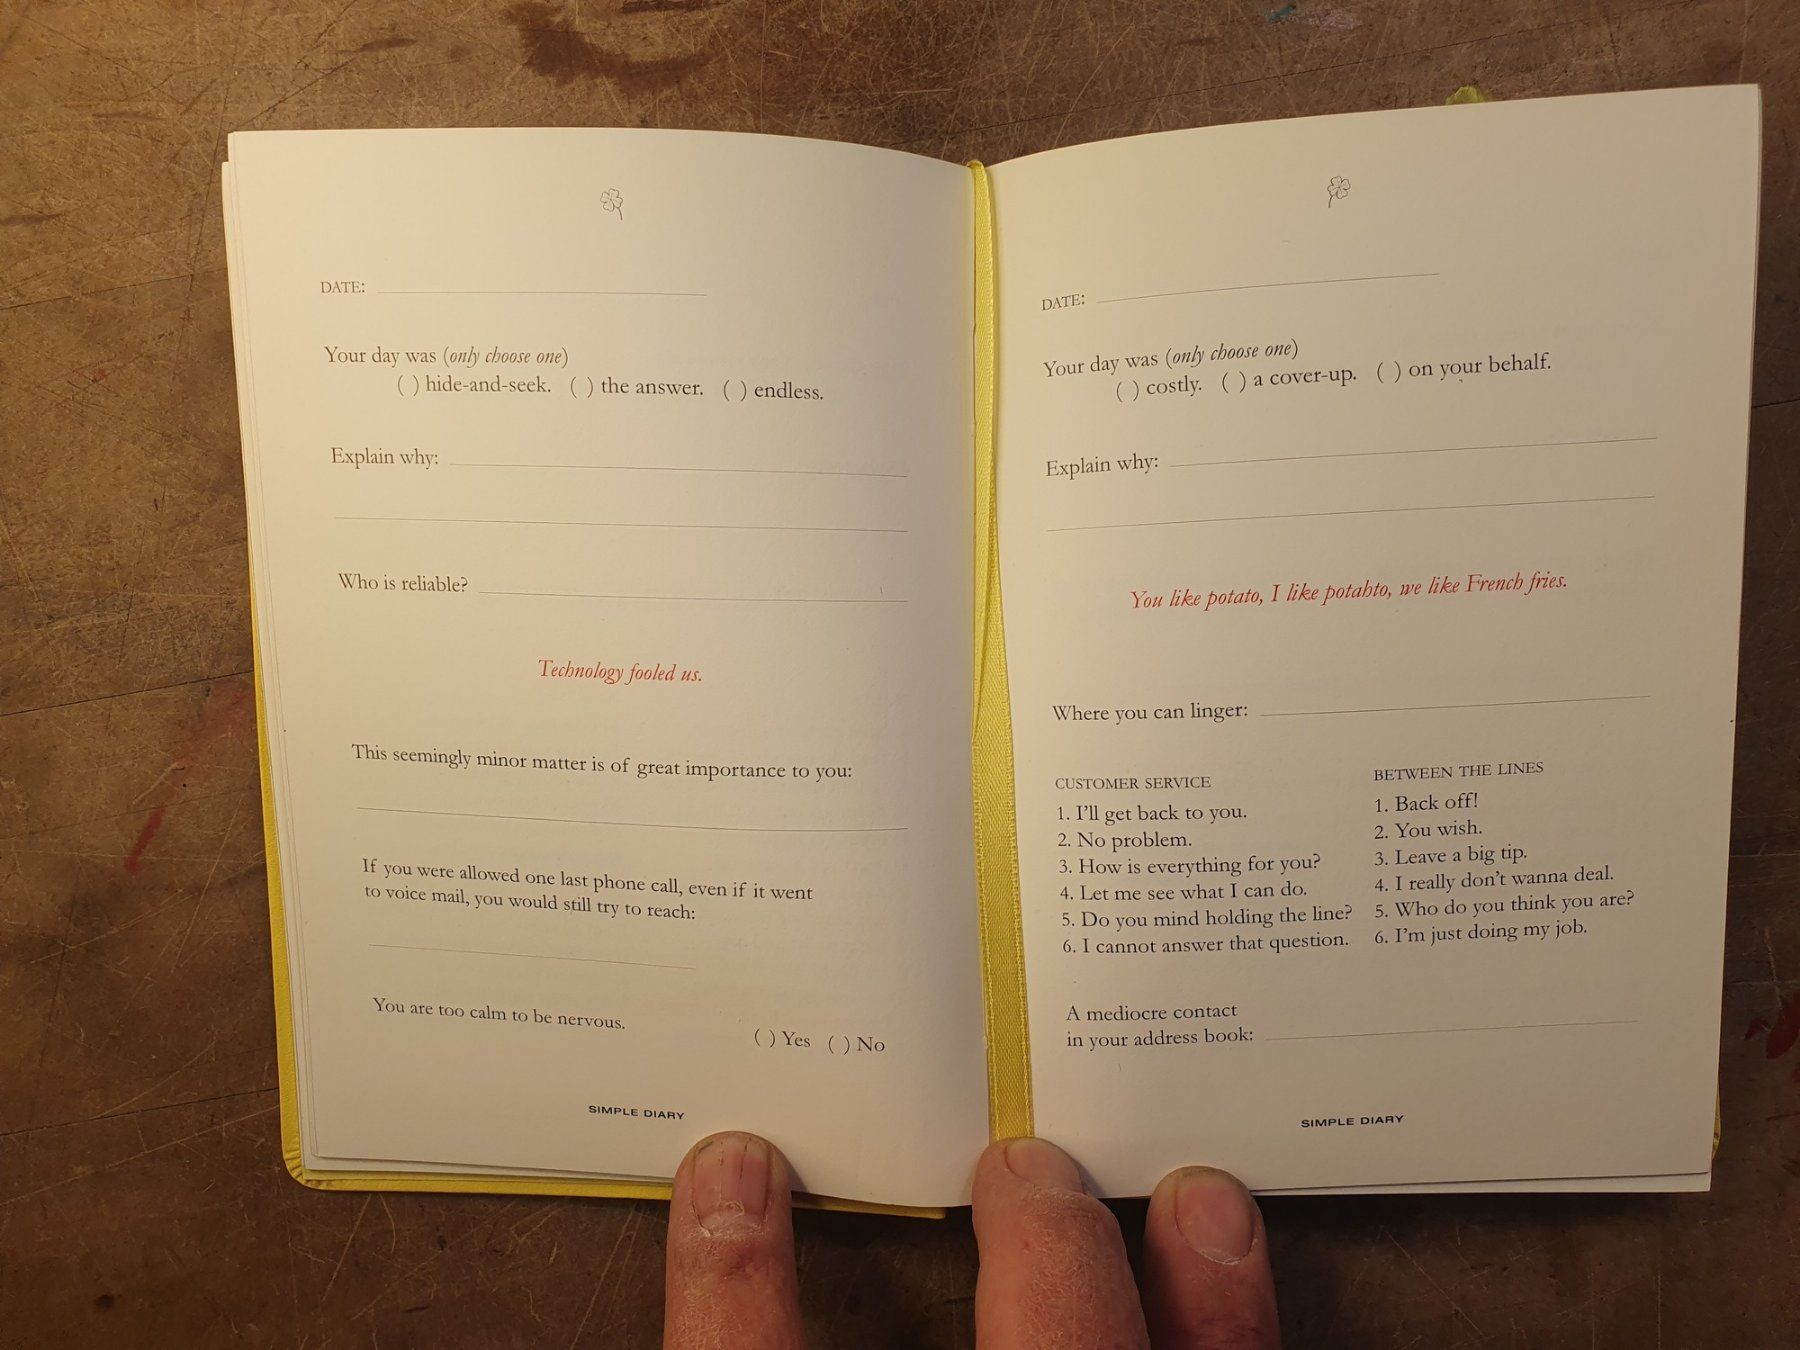 DATE:
Your day was (only choose one)
( ) hide-and-seek. ( ) the answer. ( ) endless.
Explain why:
Who is reliable?
Technology fooled us.
This seemingly minor matter is of great importance to you:
If you were allowed one last phone call, even if it went
to voice mail, you would still try to reach:
You are too calm to be nervous.
( ) Yes ( ) No
SIMPLE DIARY
DATE:
Your day was (only choose one)
( ) costly. ( ) a cover-up. ( ) on your behalf.
Explain why:
You like potato, I like potahto, we like French fries.
Where you can linger:
CUSTOMER SERVICE
1. I'll get back to you.
2. No problem.
3. How is everything for you?
4. Let me see what I can do.
5. Do you mind holding the line?
6. I cannot answer that question.
BETWEEN THE LINES
1. Back off!
2. You wish.
3. Leave a big tip.
4. I really don't wanna deal.
5. Who do you think you are?
6. I'm just doing my job.
A mediocre contact
in your address book:
SIMPLE DIARY